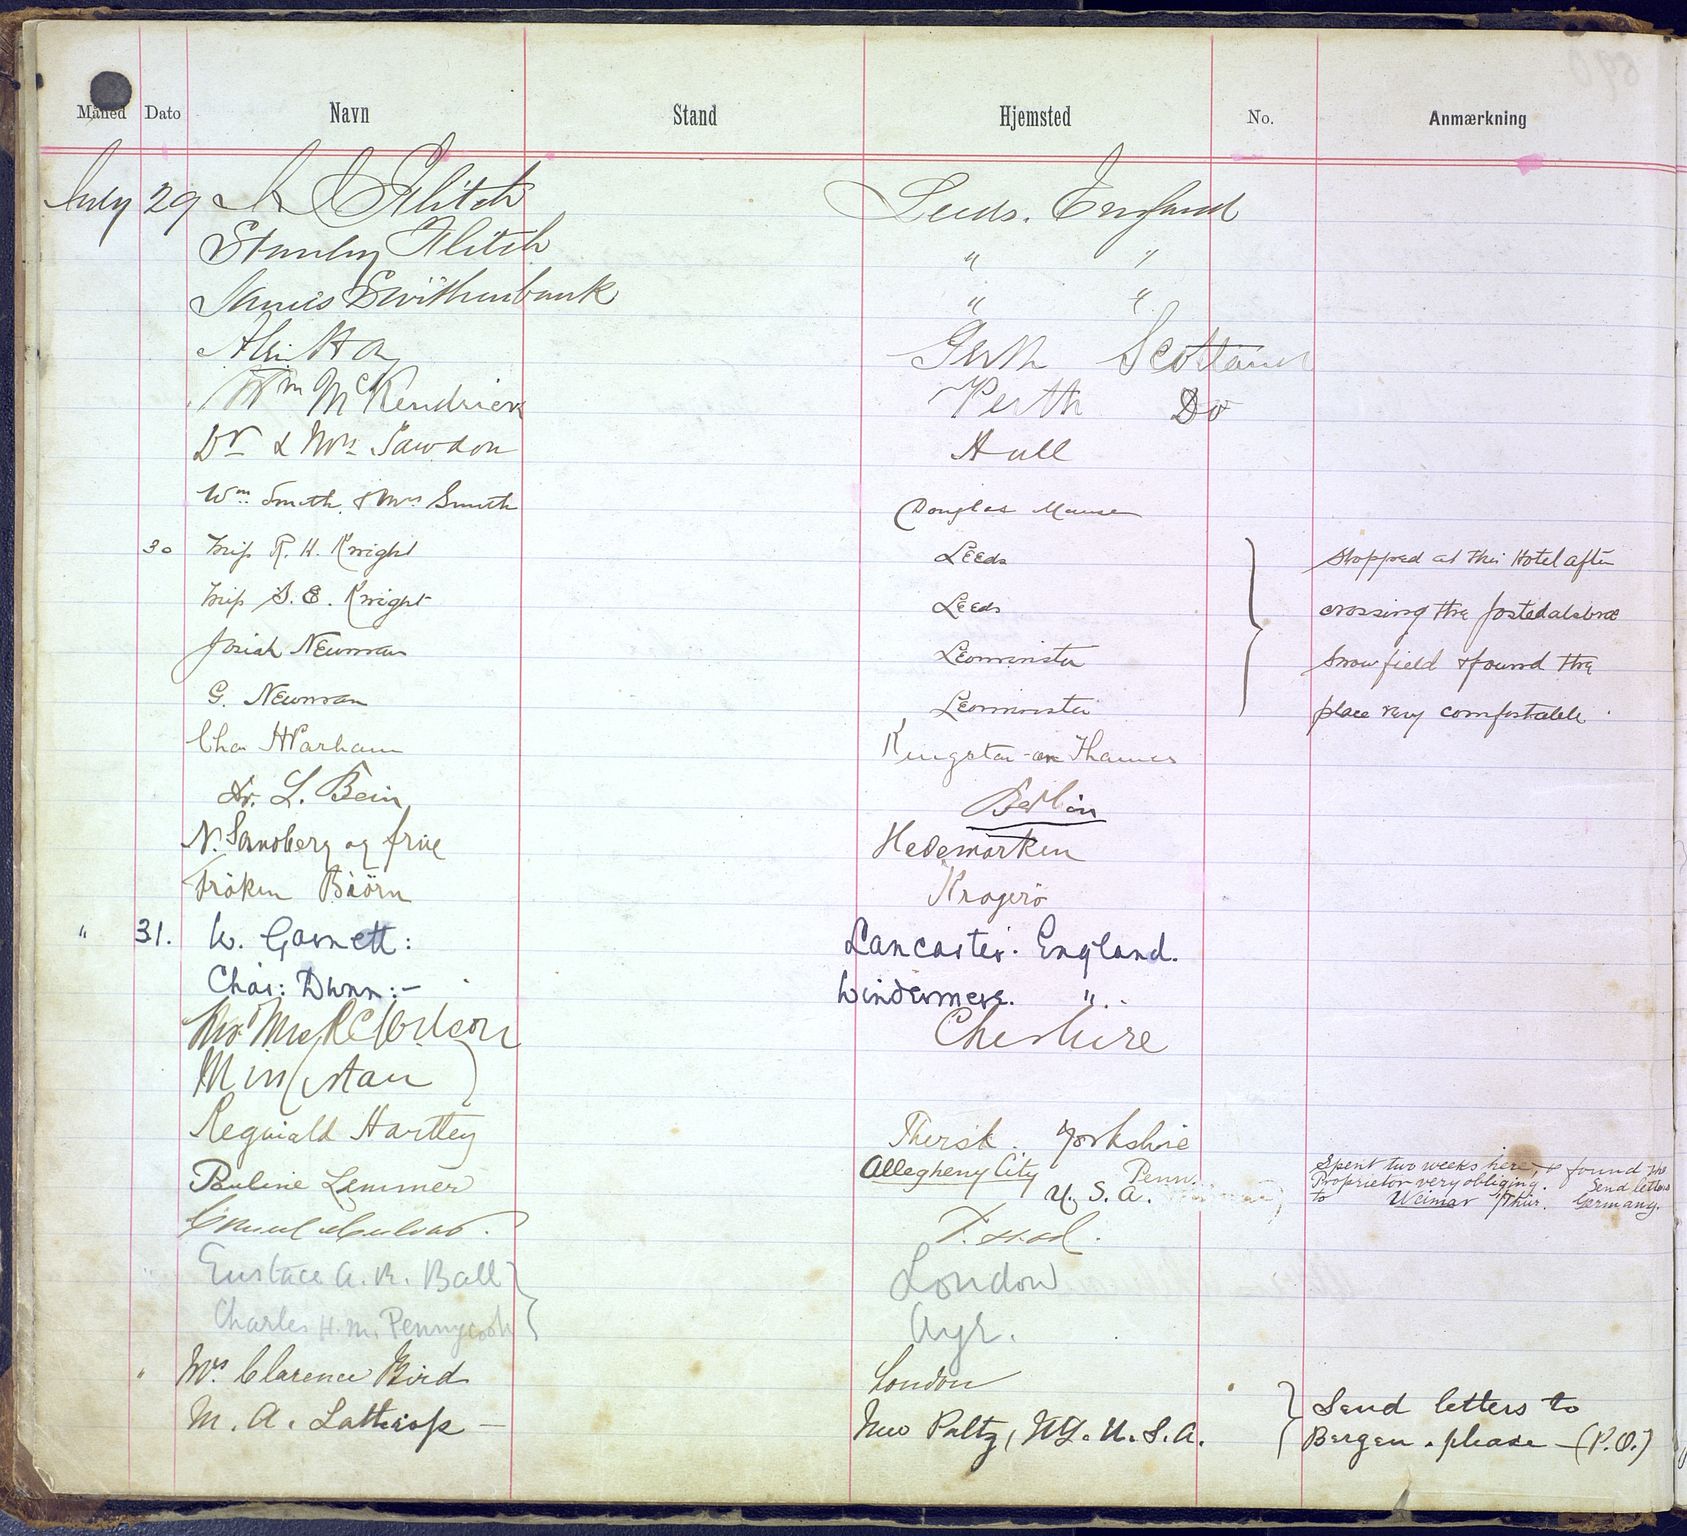 Måned Dato Navn Stand Hjemsted No. Anmærkning
July 29 Flitch Leeds. England
Stanley Flitch " "
James Swithenbank " "
Alex Hay Perth Scotland
Wm McKendrick Perth Do
Dr & Mrs Sawdon Hull
Wm Smith. & Mrs Smith Douglas
30 Miss R. H. Knight Leeds } Stopped at this Hotel after
Miss S. E. Knight Leeds crossing the Jostedalsbræ
Josiah Newman Leominster Snowfield & found the
G. Newman Leominster place very comfortable.
Chas Parham Kingston-on-Thames
Dr. L. Bein Berlin
N. Sandberg og frue Hedemarken
Frøken Biörn Kragerö
" 31. W. Garnett: Lancaster. England.
Chas: Dunn:- Windermere. "
Mr Mrs R C Wilson Cheshire
Miss
Reginald Hartley Thirsk. Yorkshire
Pauline Lemmer Allegheny City Penn. U. S. A. Spent two weeks here, & found the
Proprietor very obliging. Send letters
to Weimar / Thür. Germany.
Eustace A. R. Ball } London
Charles H. M. Pennycook Ayr.
" Mrs. Clarence Bird London } Send letters to
M. A. Lathrop — New Paltz, NY. U. S. A. Bergen. please — (P.O.)